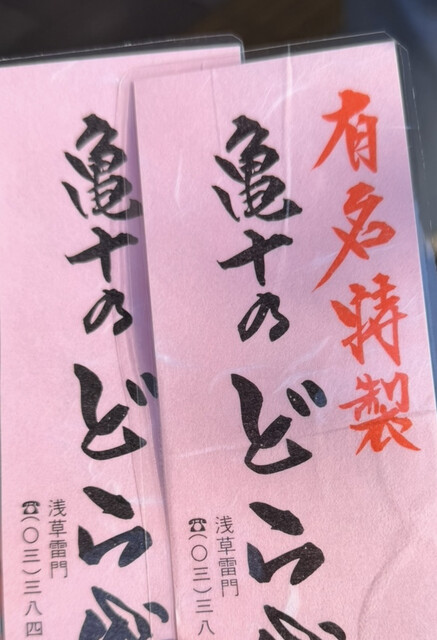 有名特製
亀十のどら
浅草雷門
☎(〇三)三八
亀十のどら
浅草雷門
☎(〇三)三八四